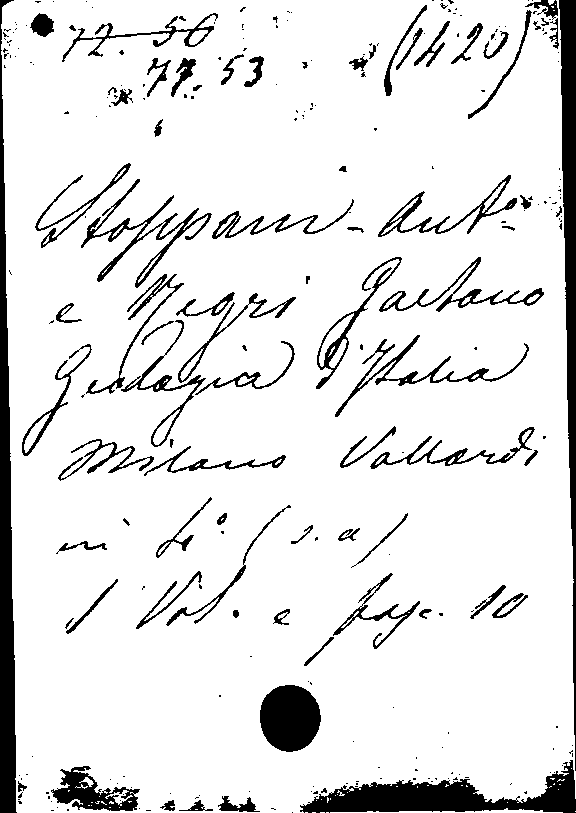 72. 56
77. 53 (1420)
Stoppani - Ant.º
e Negri Gaetano
Geologia d'Italia
Milano Vallardi
in 4.º (s. a)
1 Vol. e fasc. 10